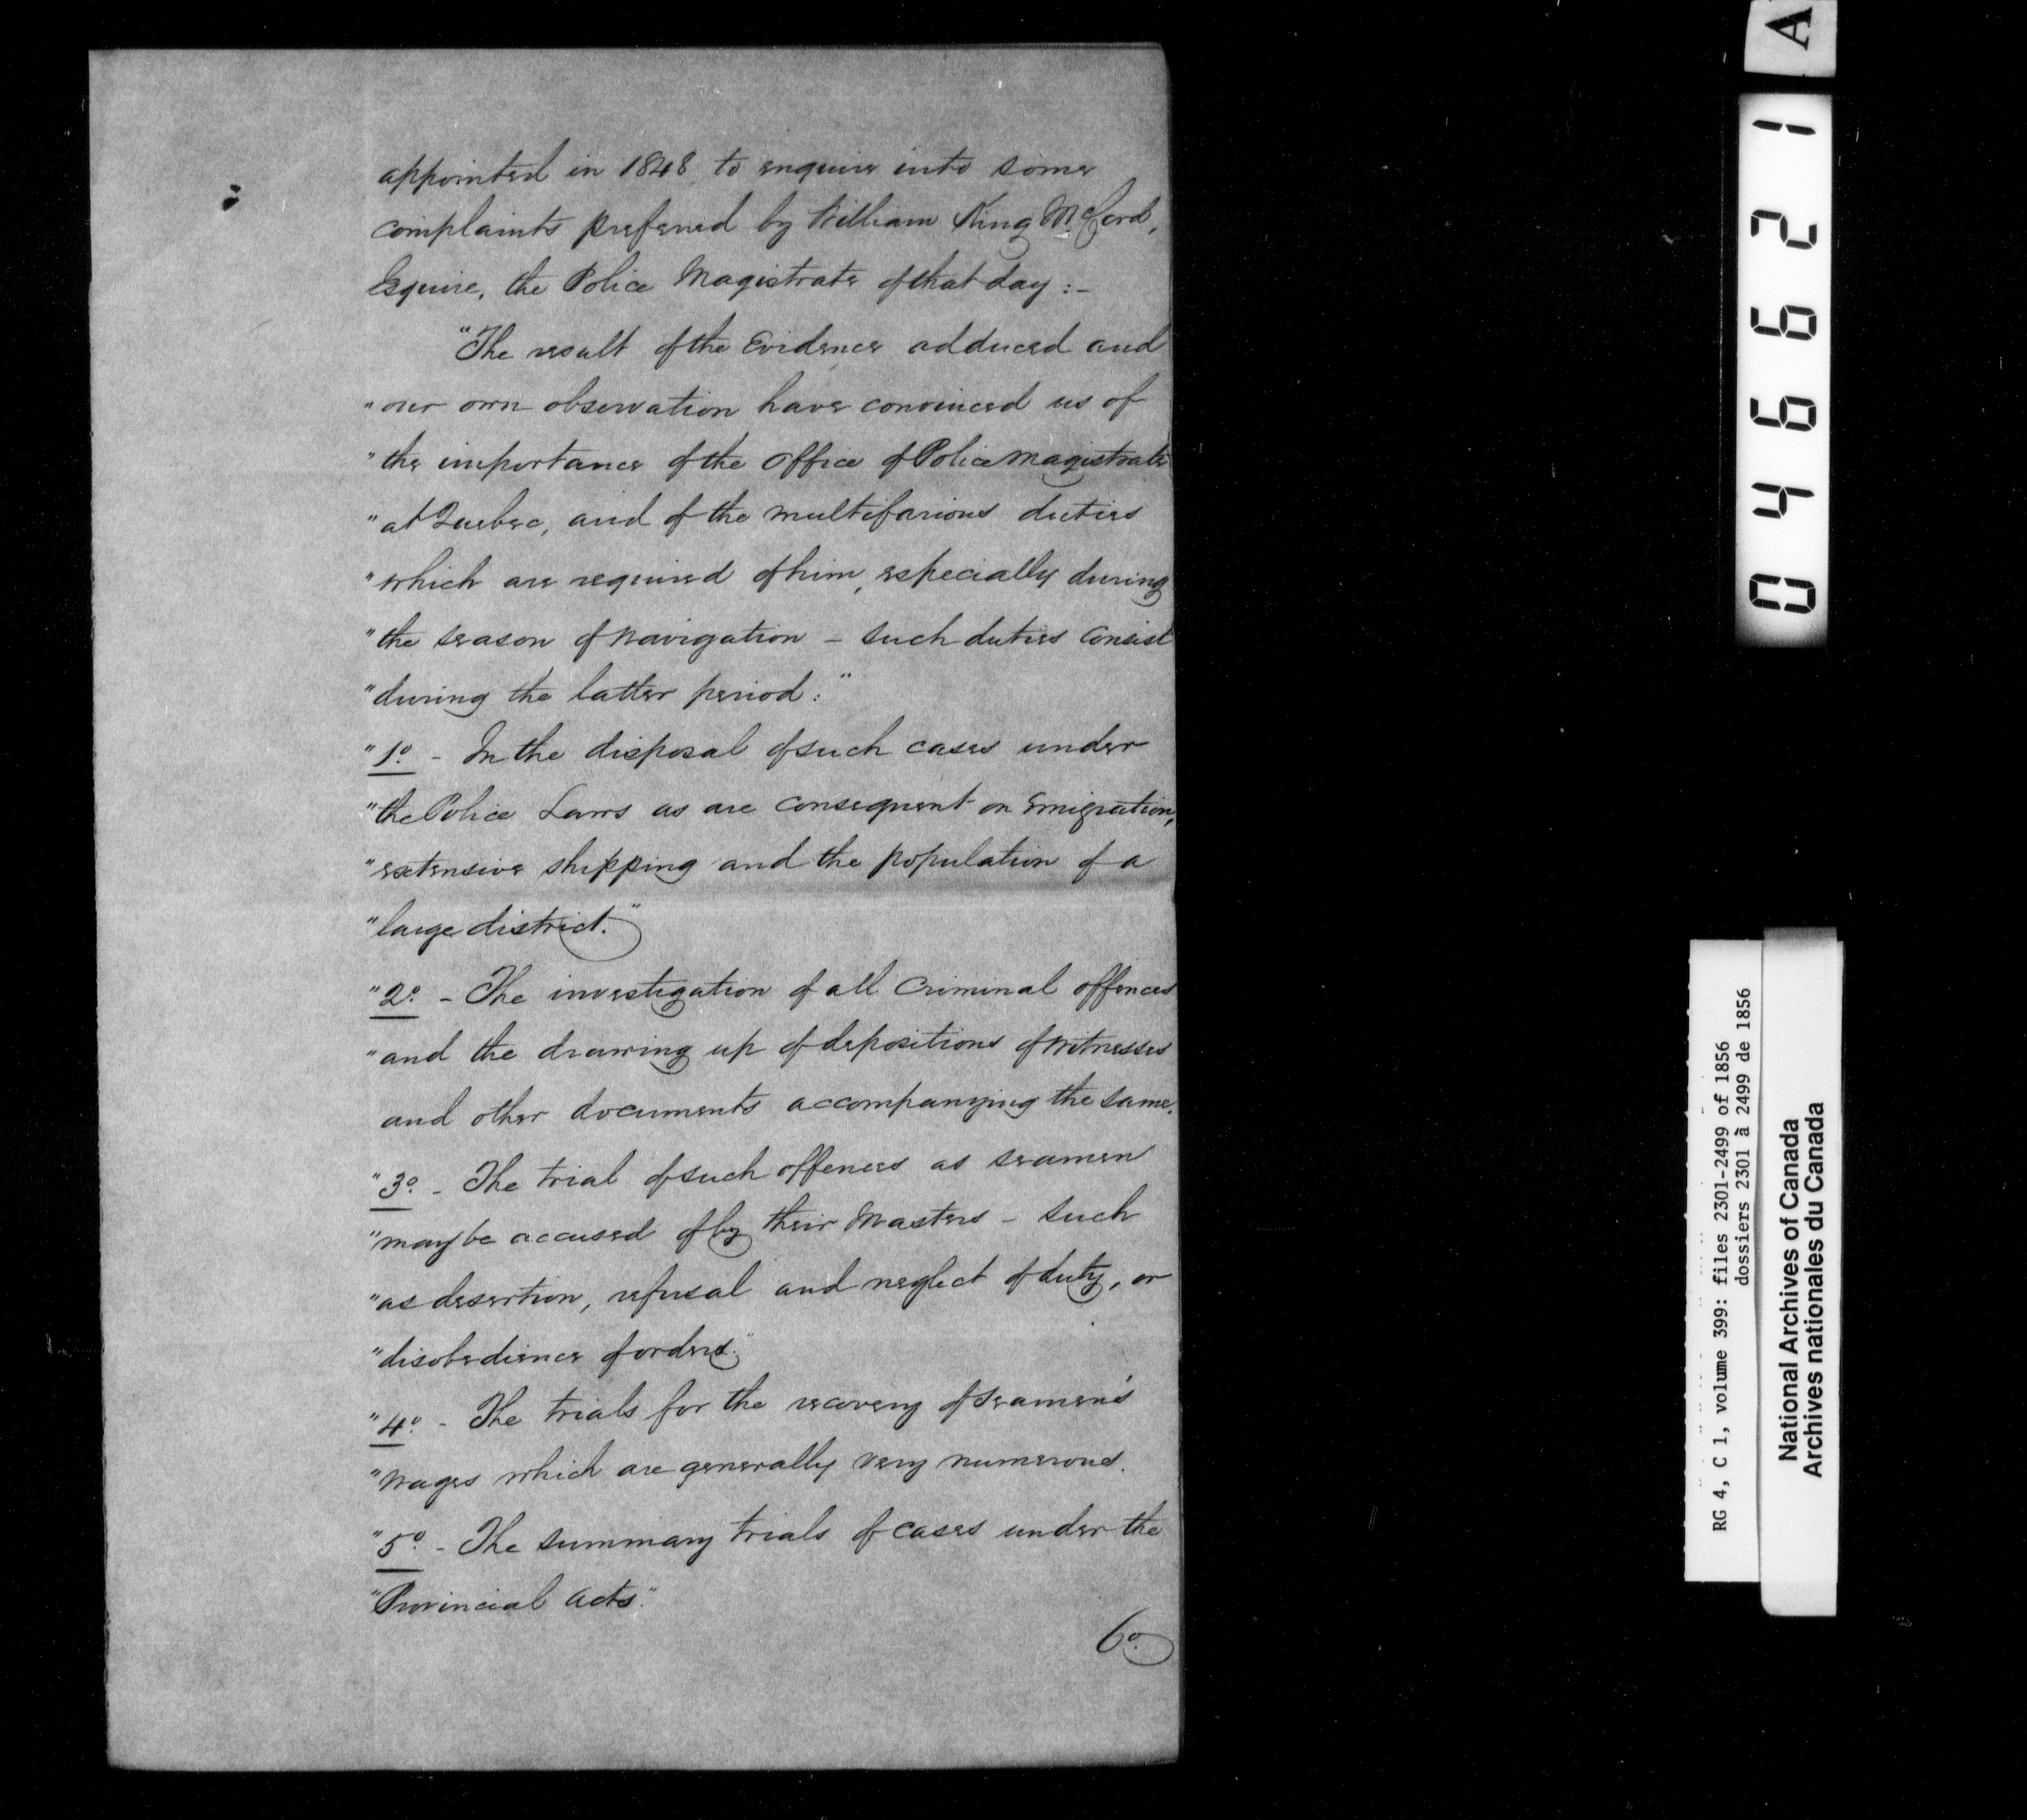 appointed in 1848 to enquire into some
complaints preferred by William King McCord,
Esquire, the Police Magistrate of that day :-
"The result of the Evidence adduced and
"our own observation have convinced us of
"the importance of the Office of Police Magistrate
"at Quebec, and of the multifarious duties
"which are required of him, especially during
"the season of Navigation - such duties Consist
"during the latter period:"
"1o - In the disposal of such cases under
"the Police Laws as are consequent on Emigration,
"extensive shipping and the population of a
"large district."
"2o - The investigation of all Criminal offences
"and the drawing up of depositions of witnesses
and other documents accompanying the same.
"3o - The trial of such offences as seamen
"may be accused of by their Masters - such
"as desertion, refusal and neglect of duty, or
"disobedience of orders."
"4o - The trials for the recovery of seamen's
"wages which are generally very numerous.
"5o - The summary trials of cases under the
"Provincial Acts."
6o
A
046621
RG 4, C 1, volume 399: files 2301-2499 of 1856
dossiers 2301 à 2499 de 1856
National Archives of Canada
Archives nationales du Canada